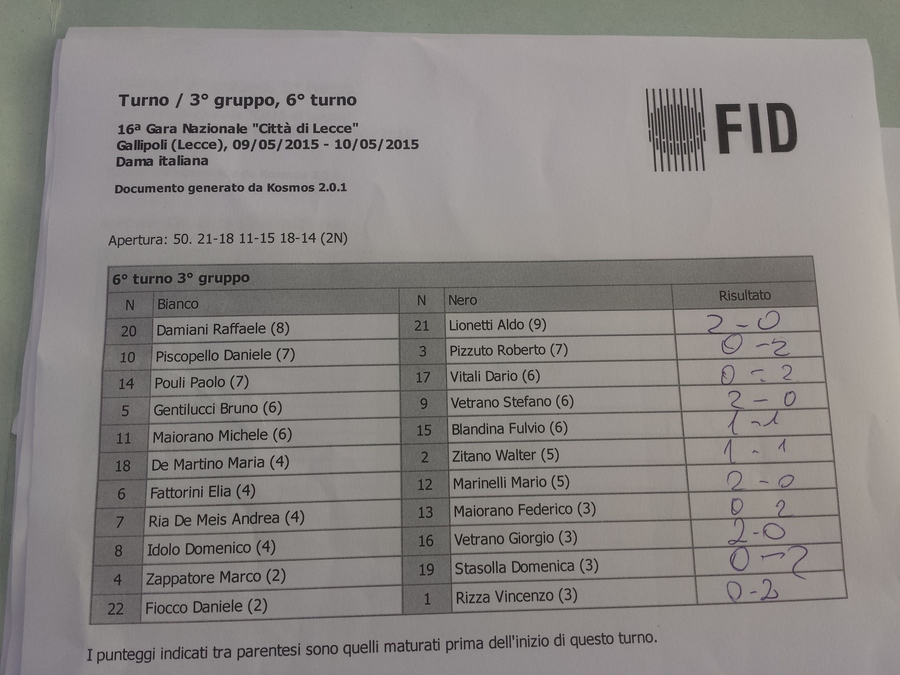 Turno / 3° gruppo, 6° turno
FID
16ª Gara Nazionale "Città di Lecce"
Gallipoli (Lecce), 09/05/2015 - 10/05/2015
Dama italiana
Documento generato da Kosmos 2.0.1
Apertura: 50. 21-18 11-15 18-14 (2N)
6° turno 3° gruppo
N Bianco N Nero Risultato
20 Damiani Raffaele (8) 21 Lionetti Aldo (9) 2 - 0
10 Piscopello Daniele (7) 3 Pizzuto Roberto (7) 0 - 2
14 Pouli Paolo (7) 17 Vitali Dario (6) 0 - 2
5 Gentilucci Bruno (6) 9 Vetrano Stefano (6) 2 - 0
11 Maiorano Michele (6) 15 Blandina Fulvio (6) 1 - 1
18 De Martino Maria (4) 2 Zitano Walter (5) 1 - 1
6 Fattorini Elia (4) 12 Marinelli Mario (5) 2 - 0
7 Ria De Meis Andrea (4) 13 Maiorano Federico (3) 0 2
8 Idolo Domenico (4) 16 Vetrano Giorgio (3) 2-0
4 Zappatore Marco (2) 19 Stasolla Domenica (3) 0 - 2
22 Fiocco Daniele (2) 1 Rizza Vincenzo (3) 0-2
I punteggi indicati tra parentesi sono quelli maturati prima dell'inizio di questo turno.